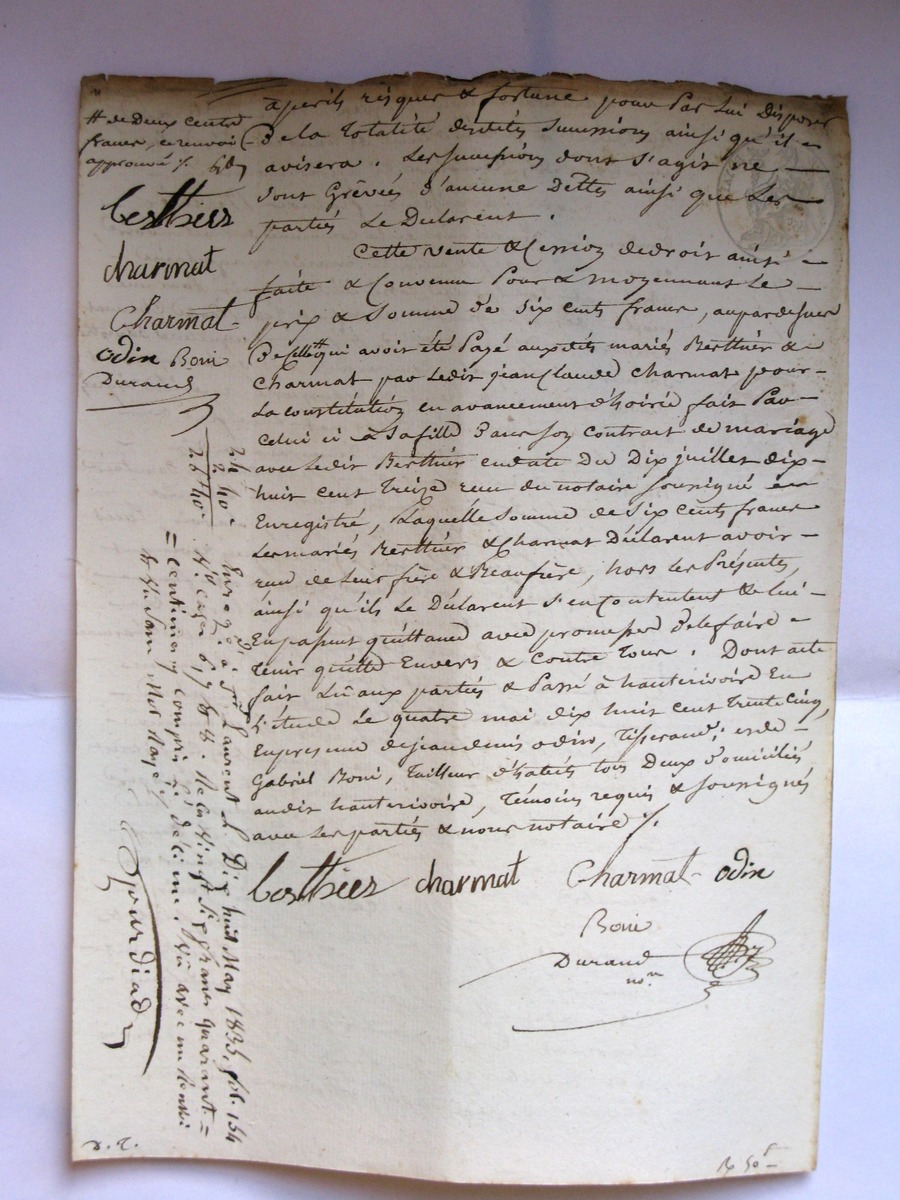 # de Deux Cents
francs, ce renvoi
approuvé ⁒
Berthier
charmat
Charmat
odin Boni
Durand
à perils risques & fortune pour Par Lui Disposer
De la Totalité desdits Successions ainsi qu'il
avisera. Les successions dont s'agit ne
sont Grêvées d'aucune Dettes ainsi que Les
partiés Le Declarent.
Cette vente & Cession de droit ainsi
faite & Convenue Pour & moyennant Le
prix & Somme de six cents francs, aupardessus
De celle # qui avoit été Payé auxdits mariés Berthier &
Charmat par Ledit jean Claude Charmat pour
La constitution en avancement d'hoirié fait Par
celui ci à sa fille dans son Contrat de mariage
avec Ledit Berthier en date Du Dix juillet dix-
huit cent Treize reçu du notaire soussigné
Enregistré, Laquelle Somme de six Cents francs
Les mariés Berthier & Charmat Déclarent avoir
reçu de Leur frère & Beaufrère, hors Les Présentes,
ainsi qu'ils Le Déclarent s'en Contentent & Lui
En passent quittance avec promesse de le faire
Tenir quitte Envers & Contre Tous. Dont acte
fait Lû aux partiés & Passé à hauterivoire En
L'étude Le quatre mai dix huit cent Trente Cinq,
En presence de jean denis odin, Tisserand, et de
Gabriel Boni, Tailleur d'habits tous Deux Domiciliés
audit hauterivoire, Témoins requis & soussignés
avec Les partiés & nous notaire ⁒
Berthier charmat Charmat odin
Boni
Durand
no.re
24 40c
2 40
26 40c
Enreg.é à St Laurent Le Dix huit May 1835, fol. 154
V.o cases 6, 7 & 8. Reçu vingt six francs quarante =
= centimes compris le décime.
Gourdiad